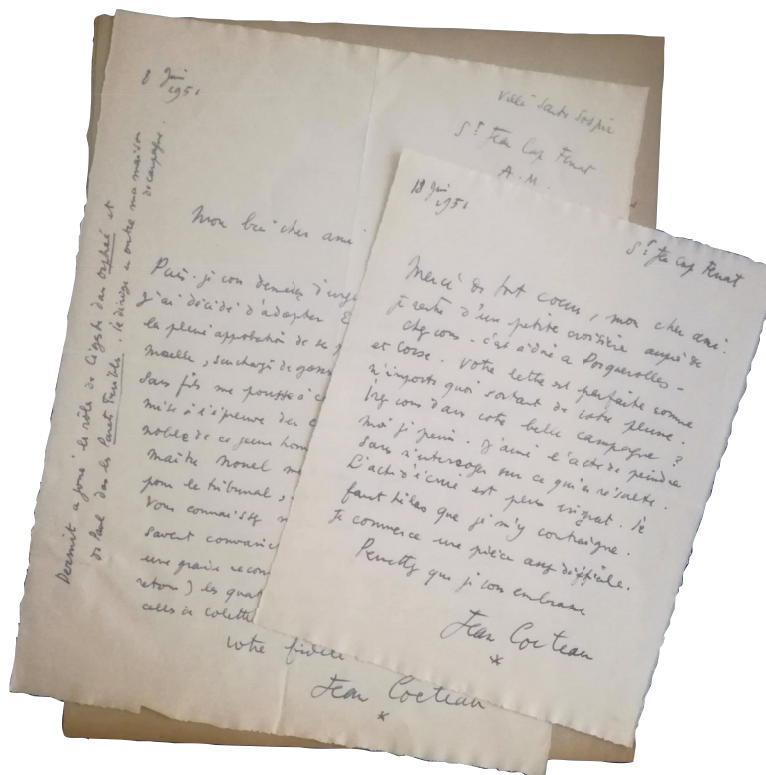 8 Juin
1951
Villa Santo Sospir
St Jean Cap Ferrat
A. M.
Mon bien cher ami
Puis-je vous demander d'urge
j'ai décidé d'adopter
la pleine approbation de sa
maelle, surchargé de gosses
sans fils me pousse à c
mise à l'épreuve des
noblesse de ce jeune hom
Maître Nonel m
pour le tribunal,
Vous connaissez
savent convaincr
une grande recon
retour) les quat
celles de Colette
Votre fidèle
Jean Cocteau
*
Dermit a joué le rôle de Cégeste dans Orphée et
de Paul dans les Parents Terribles. Il dirige en outre ma maison
de campagne.
18 Juin
1951
St Jean Cap Ferrat
Merci de tout coeur, mon cher ami.
je rentre d'une petite croisière auprès de
chez vous - c'est à dire à Porquerolles -
et Corse. Votre lettre est parfaite comme
n'importe quoi sortant de votre plume.
Irez vous dans votre belle campagne ?
moi je peins. J'aime l'acte de peindre
sans m'interroger sur ce qui en résulte.
L'acte d'écrire est plus ingrat. Il
faut hélas que je m'y contraigne.
Je commence une pièce assez difficile.
Permettez que je vous embrasse
Jean Cocteau
*